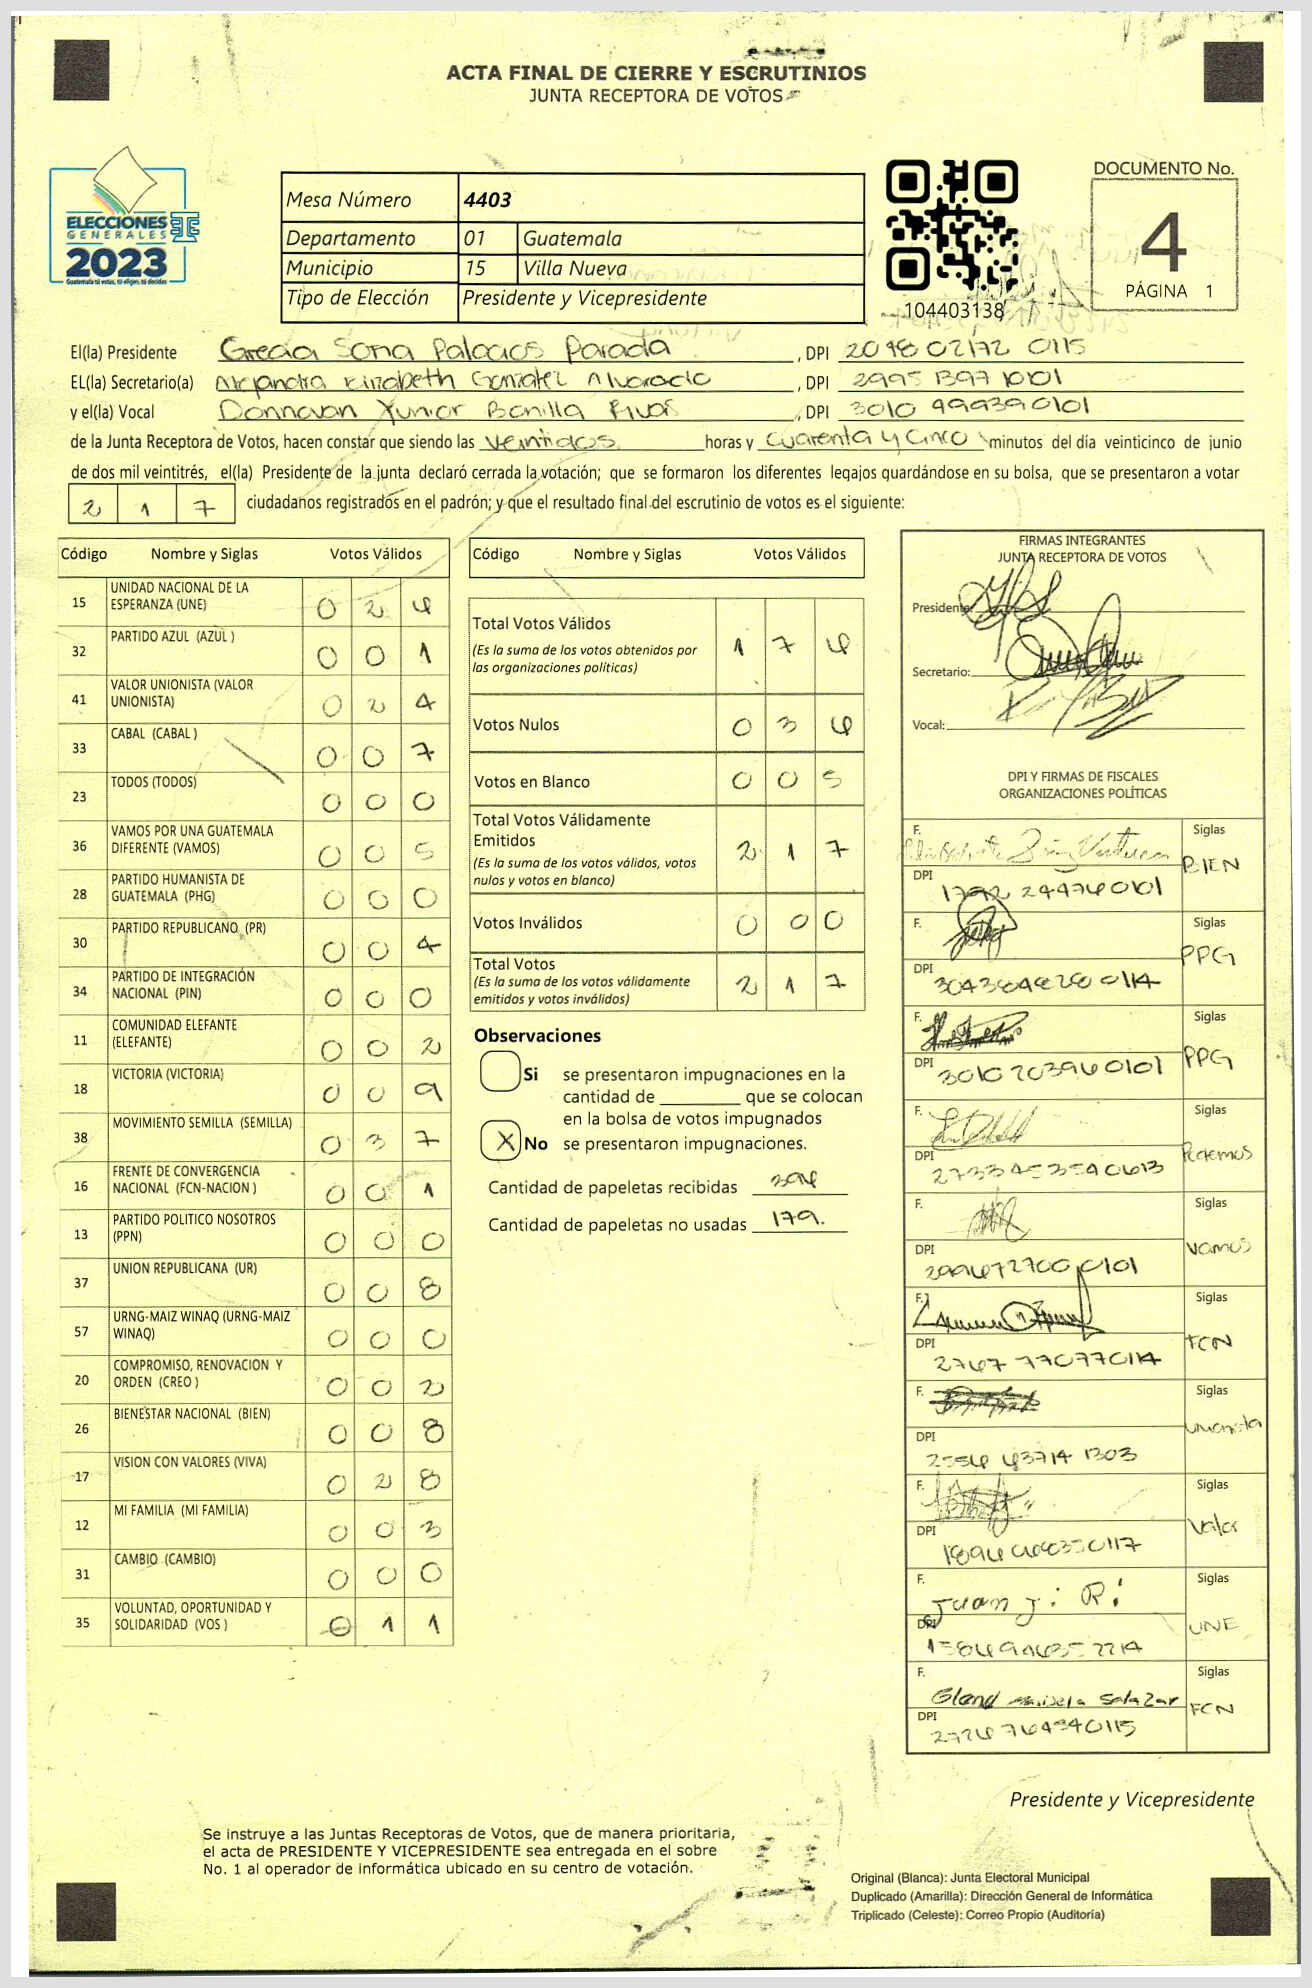 ACTA FINAL DE CIERRE Y ESCRUTINIOS
JUNTA RECEPTORA DE VOTOS
ELECCIONES
GENERALES
2023
Guatemala tú votas, tú eliges, tú decides
Mesa Número 4403
Departamento 01 Guatemala
Municipio 15 Villa Nueva
Tipo de Elección Presidente y Vicepresidente
104403138
DOCUMENTO No.
4
PÁGINA 1
El(la) Presidente Grecia Sona Palacios Parada, DPI 2098 02172 0115
EL(la) Secretario(a) Alejandra Elizabeth Gonzalez Alvarado, DPI 2995 13971 0101
y el(la) Vocal Donnovan Junior Bonilla Rivas, DPI 3010 499390101
de la Junta Receptora de Votos, hacen constar que siendo las veintidos horas y cuarenta y cinco minutos del día veinticinco de junio
de dos mil veintitrés, el(la) Presidente de la junta declaró cerrada la votación; que se formaron los diferentes legajos guardándose en su bolsa, que se presentaron a votar
2 1 7 ciudadanos registrados en el padrón; y que el resultado final del escrutinio de votos es el siguiente:
Código Nombre y Siglas Votos Válidos
15 UNIDAD NACIONAL DE LA ESPERANZA (UNE) 0 2 6
32 PARTIDO AZUL (AZUL ) 0 0 1
41 VALOR UNIONISTA (VALOR UNIONISTA) 0 2 4
33 CABAL (CABAL ) 0 0 7
23 TODOS (TODOS) 0 0 0
36 VAMOS POR UNA GUATEMALA DIFERENTE (VAMOS) 0 0 5
28 PARTIDO HUMANISTA DE GUATEMALA (PHG) 0 0 0
30 PARTIDO REPUBLICANO (PR) 0 0 4
34 PARTIDO DE INTEGRACIÓN NACIONAL (PIN) 0 0 0
11 COMUNIDAD ELEFANTE (ELEFANTE) 0 0 2
18 VICTORIA (VICTORIA) 0 0 9
38 MOVIMIENTO SEMILLA (SEMILLA) 0 3 7
16 FRENTE DE CONVERGENCIA NACIONAL (FCN-NACION ) 0 0 1
13 PARTIDO POLITICO NOSOTROS (PPN) 0 0 0
37 UNION REPUBLICANA (UR) 0 0 8
57 URNG-MAIZ WINAQ (URNG-MAIZ WINAQ) 0 0 0
20 COMPROMISO, RENOVACION Y ORDEN (CREO ) 0 0 2
26 BIENESTAR NACIONAL (BIEN) 0 0 8
17 VISION CON VALORES (VIVA) 0 2 8
12 MI FAMILIA (MI FAMILIA) 0 0 3
31 CAMBIO (CAMBIO) 0 0 0
35 VOLUNTAD, OPORTUNIDAD Y SOLIDARIDAD (VOS ) 0 1 1
Código Nombre y Siglas Votos Válidos
Total Votos Válidos 1 7 6
(Es la suma de los votos obtenidos por
las organizaciones políticas)
Votos Nulos 0 3 6
Votos en Blanco 0 0 5
Total Votos Válidamente
Emitidos 2 1 7
(Es la suma de los votos válidos, votos
nulos y votos en blanco)
Votos Inválidos 0 0 0
Total Votos 2 1 7
(Es la suma de los votos válidamente
emitidos y votos inválidos)
Observaciones
Si se presentaron impugnaciones en la
cantidad de ________ que se colocan
en la bolsa de votos impugnados
X No se presentaron impugnaciones.
Cantidad de papeletas recibidas 396
Cantidad de papeletas no usadas 179.
FIRMAS INTEGRANTES
JUNTA RECEPTORA DE VOTOS
Presidente:
Secretario:
Vocal:
DPI Y FIRMAS DE FISCALES
ORGANIZACIONES POLÍTICAS
F. Siglas BIEN
DPI 1792 249760101
F. Siglas PPG
DPI 3043898280114
F. Siglas PPG
DPI 3010 203960101
F. Siglas Podemos
DPI 2733453590613
F. Siglas Vamos
DPI 2996727000101
F. Siglas FCN
DPI 2767 770770114
F. Siglas unionista
DPI 2556 63714 1303
F. Siglas Valor
DPI 1896606350117
F. Juan J: R: Siglas UNE
DPI 1586 91635 2214
F. Gland Marisela Salazar Siglas FCN
DPI 2726 764340115
Presidente y Vicepresidente
Se instruye a las Juntas Receptoras de Votos, que de manera prioritaria,
el acta de PRESIDENTE Y VICEPRESIDENTE sea entregada en el sobre
No. 1 al operador de informática ubicado en su centro de votación.
Original (Blanca): Junta Electoral Municipal
Duplicado (Amarilla): Dirección General de Informática
Triplicado (Celeste): Correo Propio (Auditoría)